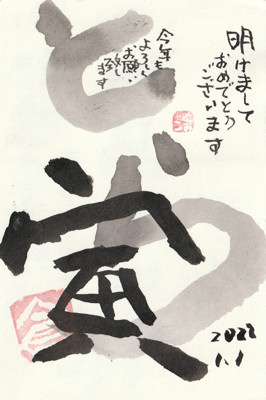 明けまして
おめでとう
ございます
今年も
よろしく
お願い
致し
ます
とら
寅
2022
1.1